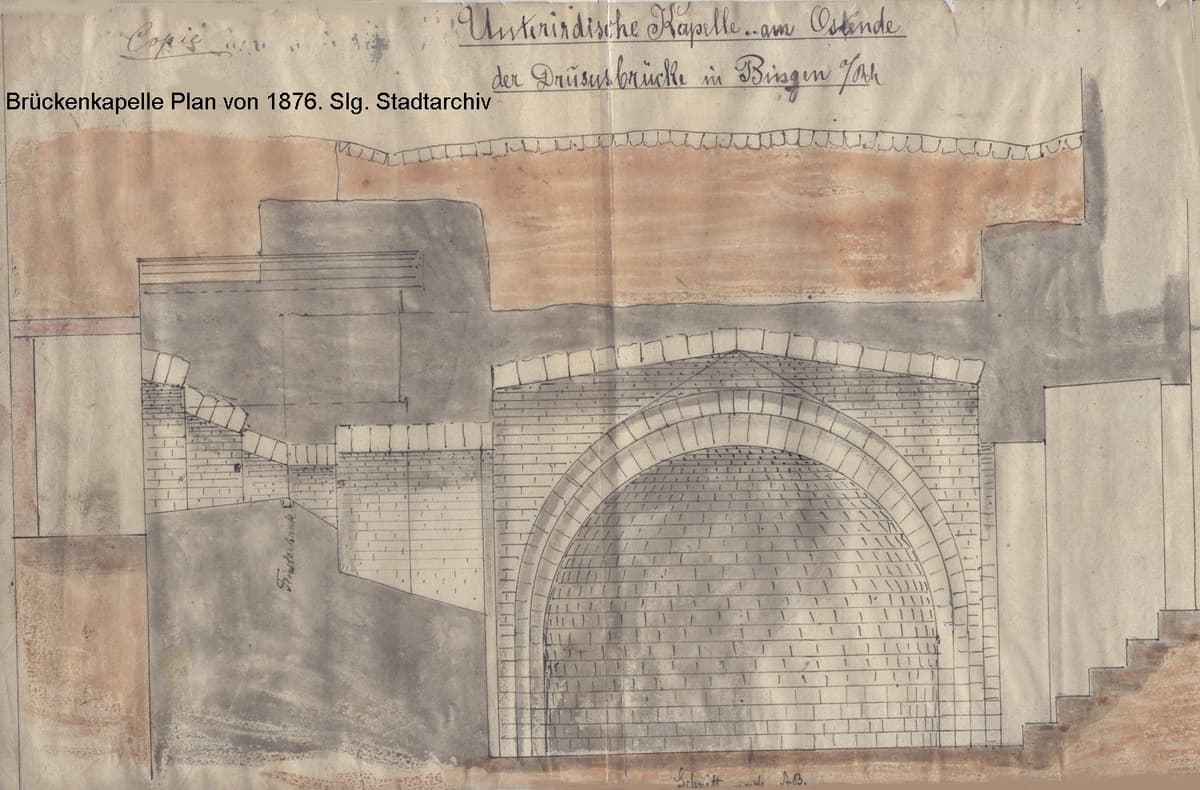 Copie
Unterirdische Kapelle am Ostende
der Drususbrücke in Bingen a/Rh
Brückenkapelle Plan von 1876. Slg. Stadtarchiv
Fensterbank
Schnitt nach AB.